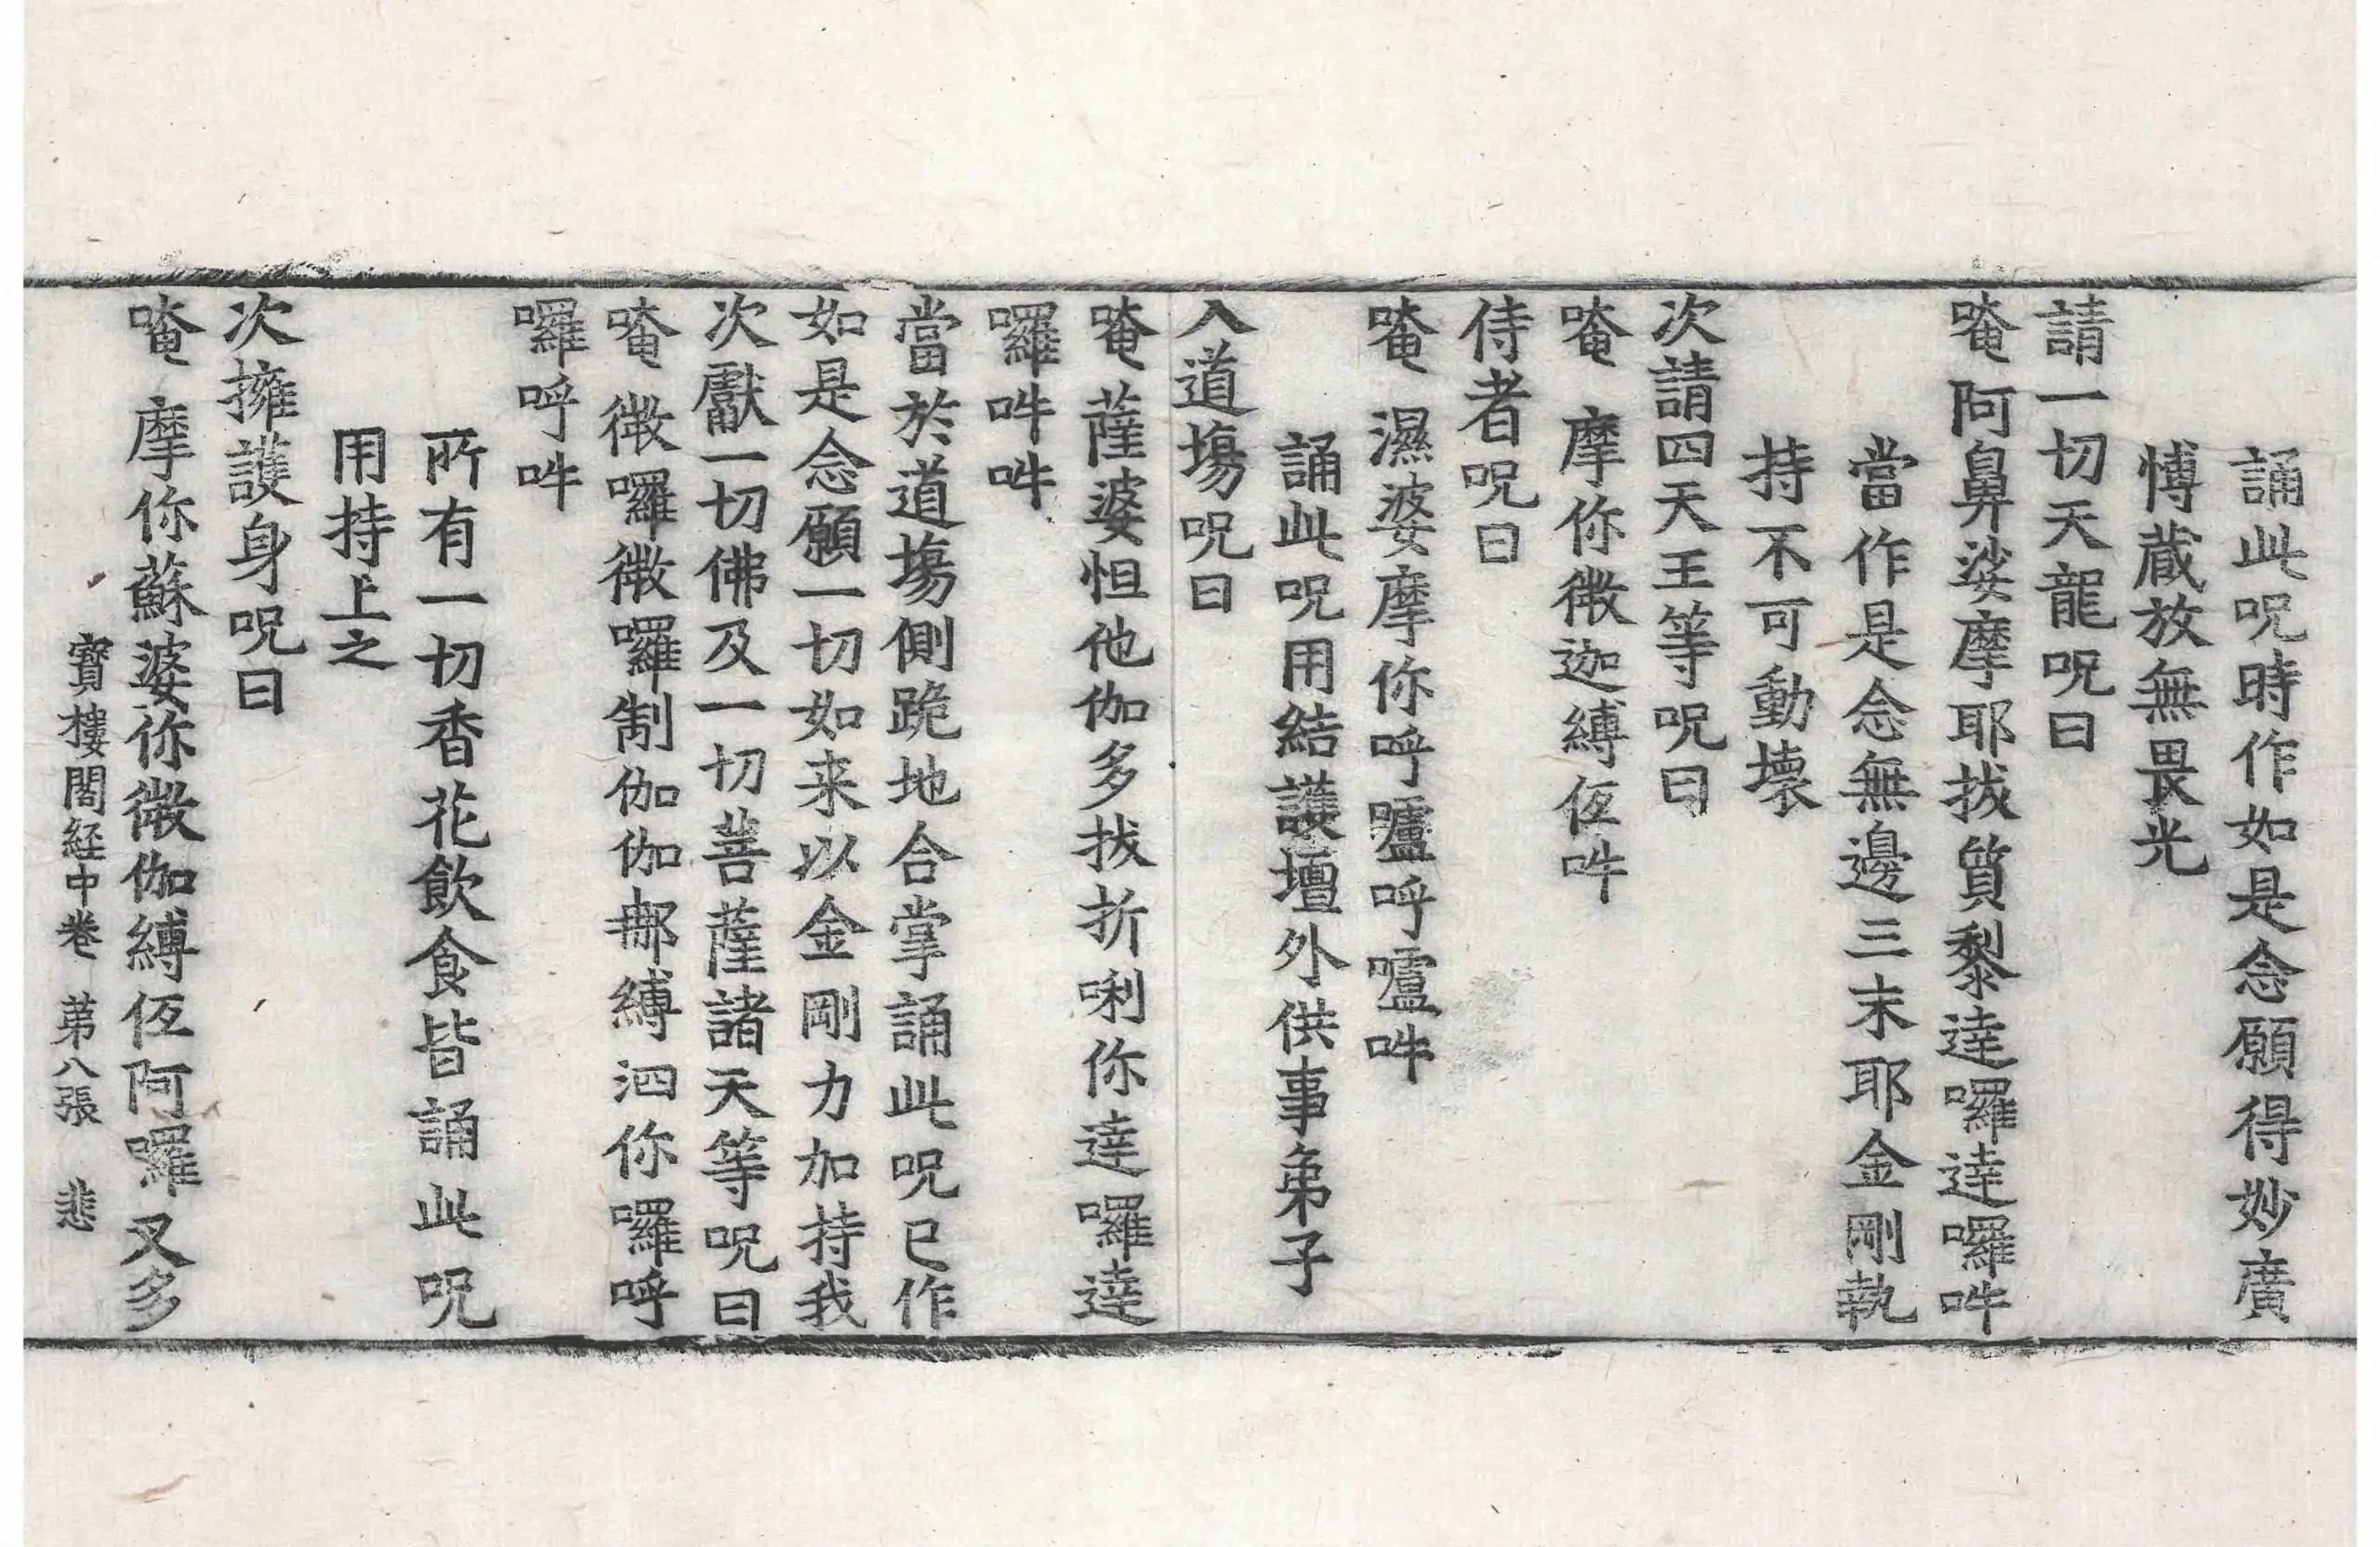 誦此呪時作如是念願得妙廣
愽蔵放無畏光
請一切天龍呪曰
唵 阿鼻娑摩耶拔質黎達囉達囉吽
當作是念無邊三末耶金剛執
持不可動壞
次請四天王等呪曰
唵 摩你微迦縛伍吽
侍者呪曰
唵 濕婆摩你呼嚧呼嚧吽
誦此呪用結護壇外供事弟子
入道塲呪曰
唵 薩婆怛他伽多拔折唎你達囉達
囉吽吽
當於道塲側跪地合掌誦此呪已作
如是念願一切如来以金剛力加持我
次獻一切佛及一切菩薩諸天等呪曰
唵 微囉微囉制伽伽那縛泗你囉呼
囉呼吽
所有一切香花飲食皆誦此呪
用持上之
次擁護身呪曰
唵 摩你蘇婆你微伽縛伍阿囉叉多
寶樓閣経中卷 苐八張 悲